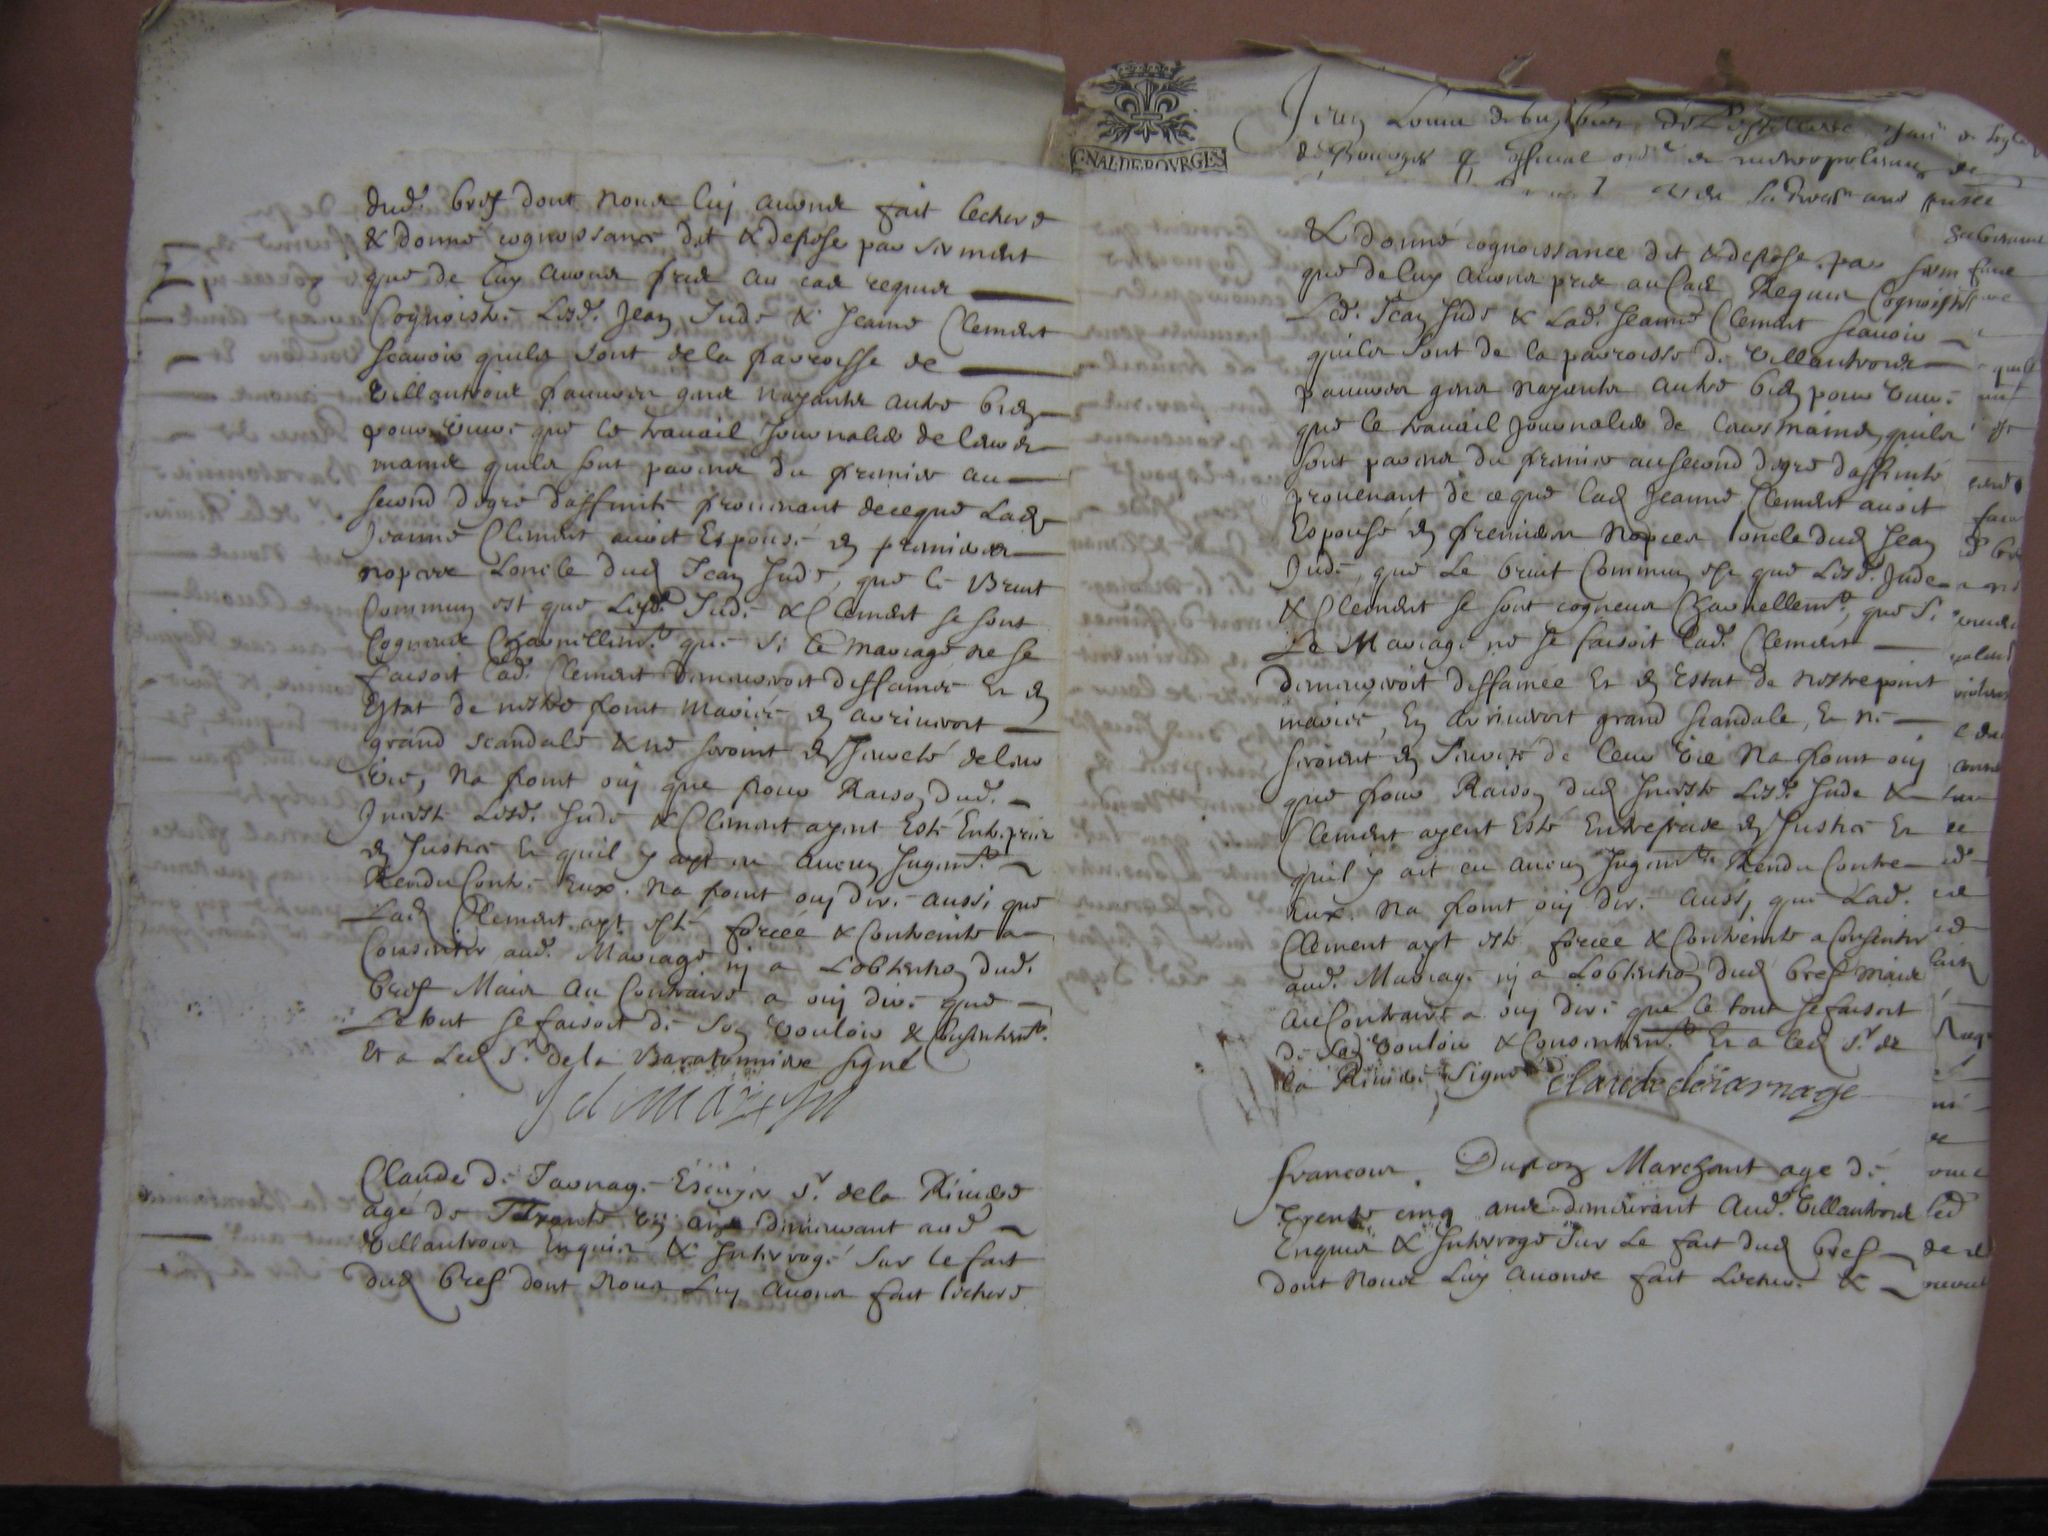 dud. bref dont nous luy avons fait lecture
& donné cognoissance dit & depose par serment
que de luy avons pris au cas requis
Cognoistre Lesd. Jean Jude & Jeanne Clement
scavoir quils sont de la parroisse de
Villantrois pauvres gens nayants autre bien
pour vivre que le travail Journalier de leurs
mains quils sont parens du premier au
second degré daffinité provenant de ce que Lad.
Jeanne Clement avoit Espousé en premieres
nopces Loncle dud Jean Jude, que le Bruit
Commun est que Lesd. Jude & Clement se sont
Cogneus Charnellemt. que si le mariage ne se
faisoit Lad. Clement demeureroit diffamée Et en
Estat de nestre point mariée en avriendroit
grand scandale & ne seroint en seureté de leur
vie, Na point ouy que pour Raison dud.
Inceste Lesd. Jude & Clement ayent Esté Entrepris
en Justice Et quil y ayt eu aucun Jugemt.
Rendu Contre Eux. Na point ouy dire aussi que
Lad Clement ayt esté forcée & Contreinte a
Consentir aud. Mariage ny a Lobtention dud.
bref Mais Au Contraire a ouy dire que
Le tout se faisoit de son vouloir & Consentemt.
Et a Led Sr. de la Baratonniere signé
Claude de Jarnage Escuyer Sr. de la Riviere
agé de Trente ans demeurant aud.
Villantrois Enquis & Interrogé Sur le fait
dud bref dont Nous Luy Avons fait lecture
GNALDEBOVRGES
de Bourges & official de
& donné cognoissance dit & depose par serm
que de luy Avons pris au Cas Requis Cognoistre
Led. Jean Jude & Lad. Jeanne Clement scavoir
quils sont de la parroisse de Villantrois
pauvres gens nayants autre bien pour vivre
que le travail Journalier de leurs mains, quils
sont parens du premier au second degré daffinité
provenant de ce que Lad Jeanne Clement avoit
Espousé en premieres Nopces loncle dud Jean
Jude, que Le bruit Commun est que Lesd. Jude
& Clement se sont cogneus Charnellemt, que Si
Le Mariage ne se faisoit Lad. Clement
demeureroit diffamée Et en Estat de nestre point
mariée, En avriendroit grand scandale, Et ne
seroient en seureté de leur vie Na point ouy
que pour Raison dud Inceste Lesd. Jude &
Clement ayent Esté Entrepris en Justice Et
quil y ait eu aucun Jugemt. Rendu Contre
Eux. Na point ouy dire aussy que Lad.
Clement ayt esté forcée & Contreinte a Consentir
aud. Mariage ny a Lobtention dud bref mais
Au Contraire a ouy dire que le tout se faisoit
de son vouloir & Consentemt. Et a led Sr. de
la Riviere Signé Claude de iarnage
francois Dupon Marchant agé de
Trente cinq ans demeurant Aud. Villantrois
Enquis & Interrogé Sur Le fait dud bref
dont Nous Luy Avons fait Lecture &